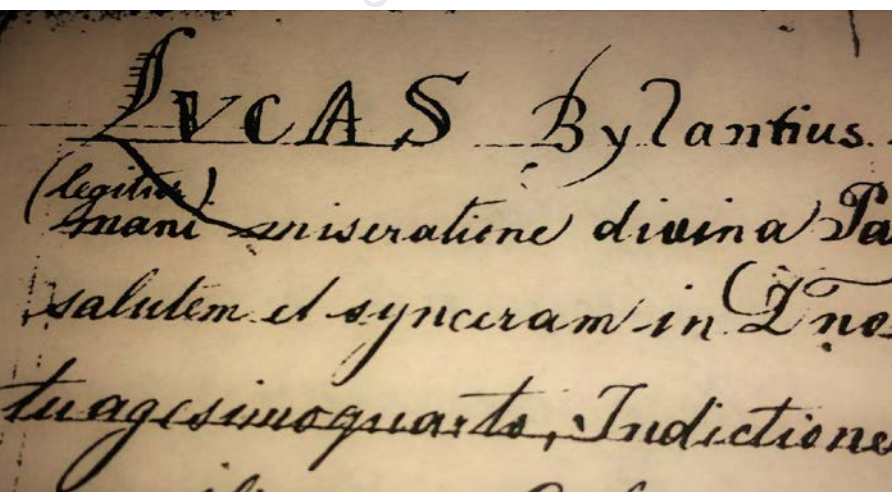 LVCAS Bylantius.
(legitur)
mani miseratione divina Pa
salutem et synceram in Dno
tuagesimoquarto, Indictione